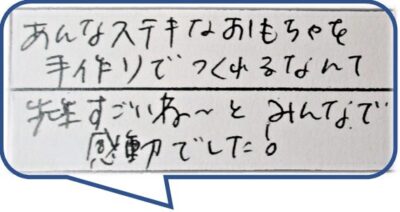 あんなステキなおもちゃを
手作りでつくれるなんて
先生すごいね〜とみんなで
感動でした!